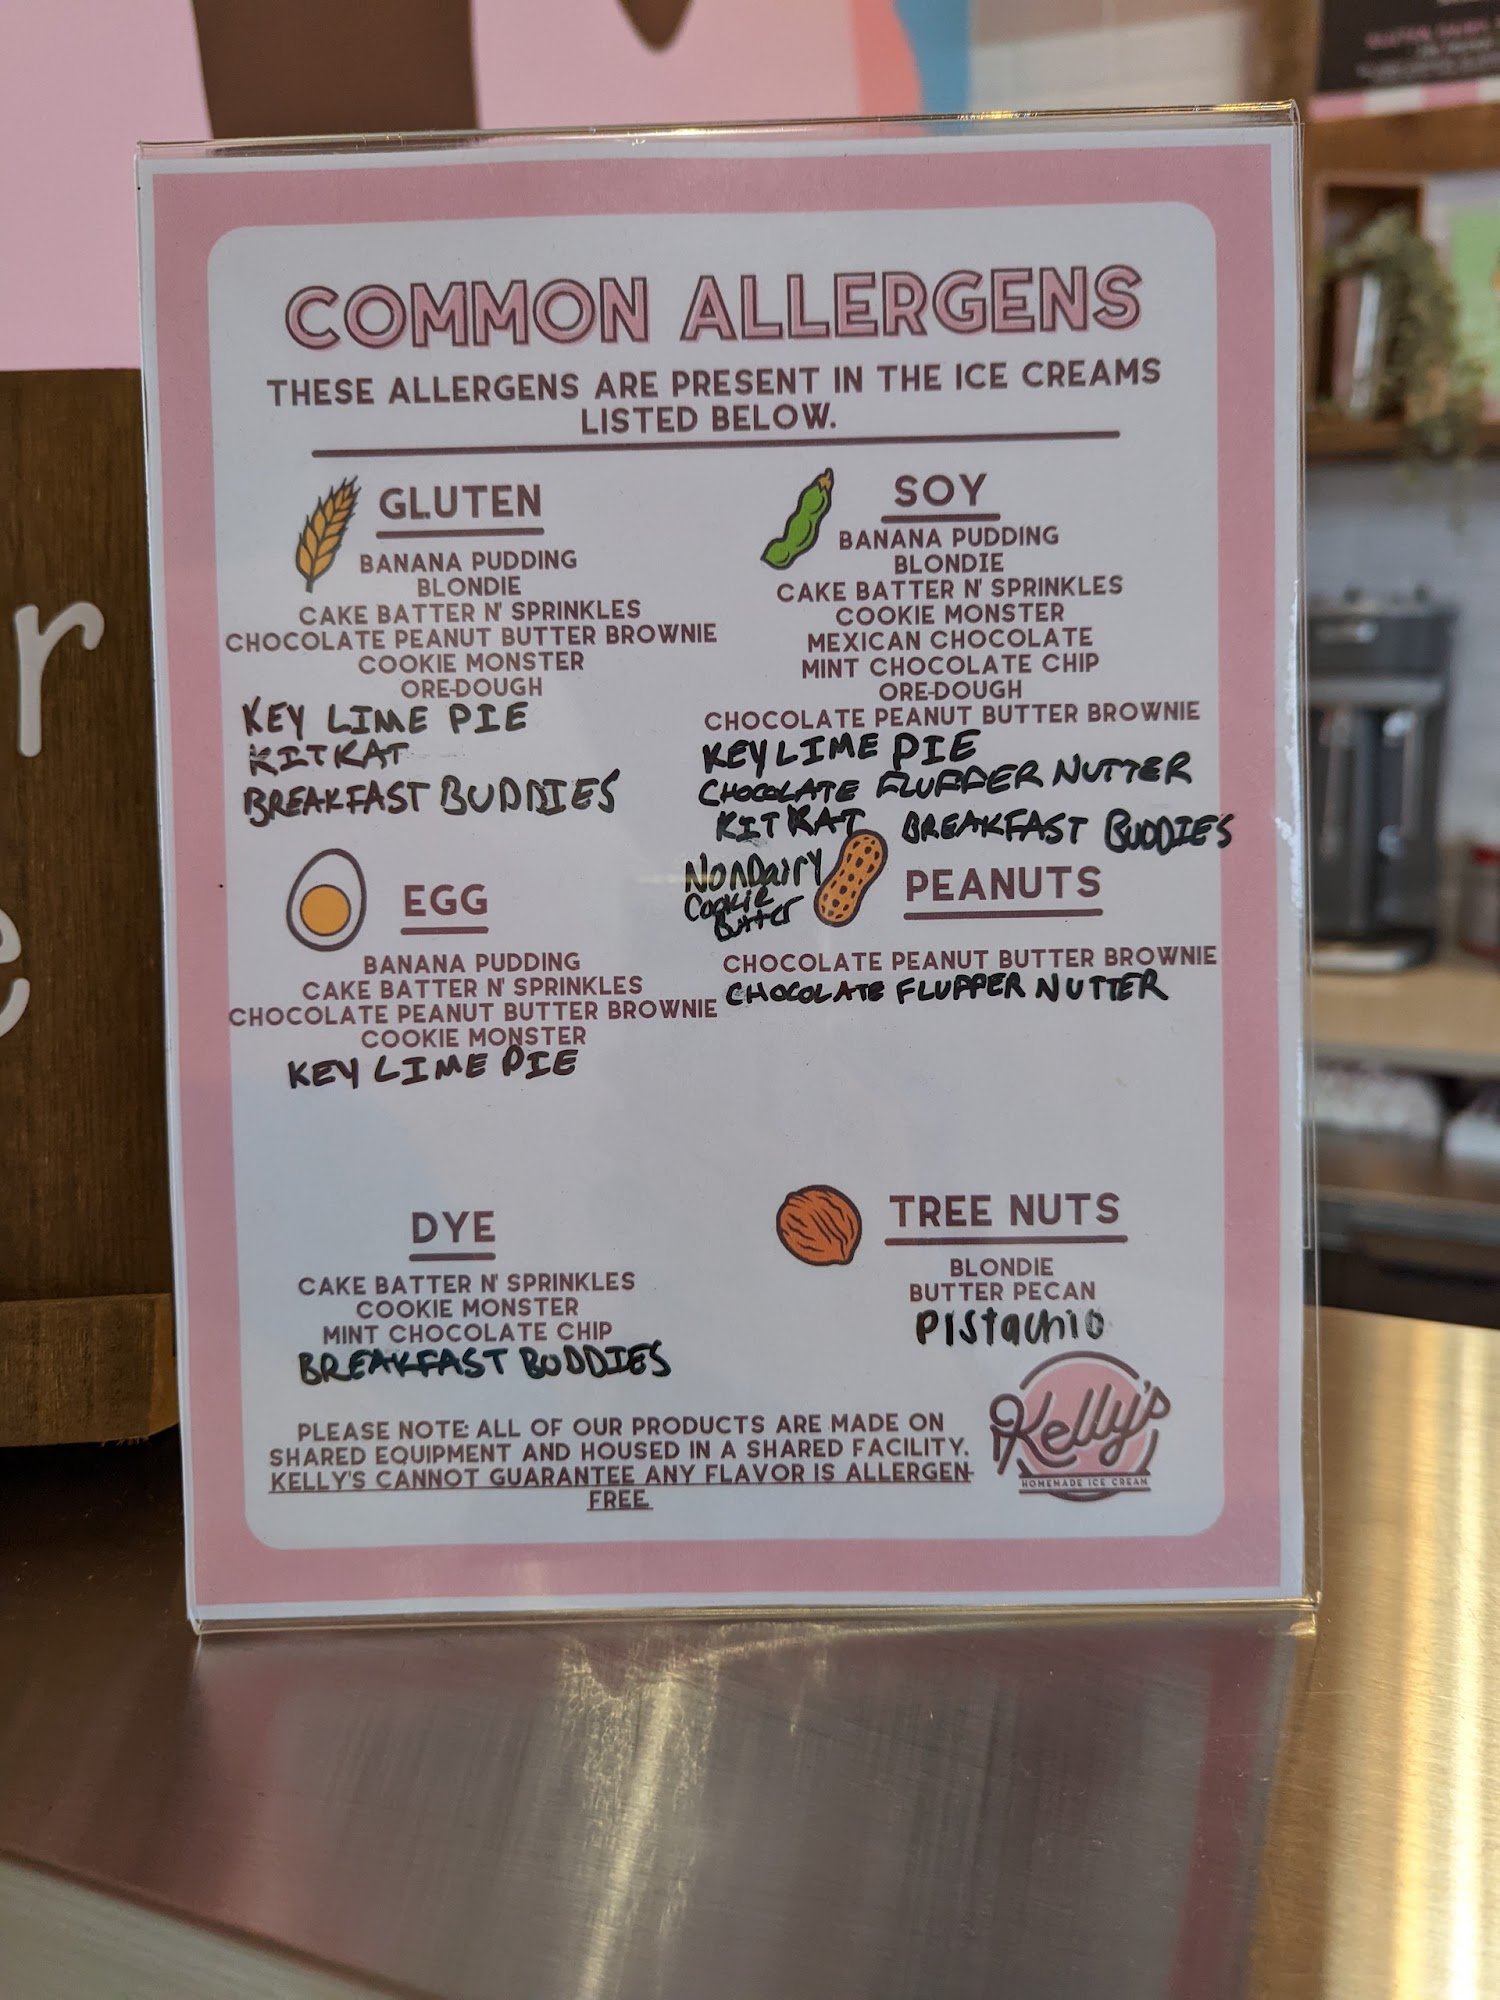 COMMON ALLERGENS
THESE ALLERGENS ARE PRESENT IN THE ICE CREAMS
LISTED BELOW.
GLUTEN
BANANA PUDDING
BLONDIE
CAKE BATTER N' SPRINKLES
CHOCOLATE PEANUT BUTTER BROWNIE
COOKIE MONSTER
ORE-DOUGH
KEY LIME PIE
KITKAT
BREAKFAST BUDDIES
SOY
BANANA PUDDING
BLONDIE
CAKE BATTER N' SPRINKLES
COOKIE MONSTER
MEXICAN CHOCOLATE
MINT CHOCOLATE CHIP
ORE-DOUGH
CHOCOLATE PEANUT BUTTER BROWNIE
KEY LIME PIE
CHOCOLATE FLUFFER NUTTER
KITKAT BREAKFAST BUDDIES
NonDairy
Cookie
Butter
EGG
BANANA PUDDING
CAKE BATTER N' SPRINKLES
CHOCOLATE PEANUT BUTTER BROWNIE
COOKIE MONSTER
KEY LIME PIE
PEANUTS
CHOCOLATE PEANUT BUTTER BROWNIE
CHOCOLATE FLUFFER NUTTER
DYE
CAKE BATTER N' SPRINKLES
COOKIE MONSTER
MINT CHOCOLATE CHIP
BREAKFAST BUDDIES
TREE NUTS
BLONDIE
BUTTER PECAN
PIStachio
PLEASE NOTE: ALL OF OUR PRODUCTS ARE MADE ON
SHARED EQUIPMENT AND HOUSED IN A SHARED FACILITY.
KELLY'S CANNOT GUARANTEE ANY FLAVOR IS ALLERGEN-
FREE.
Kelly's
HOMEMADE ICE CREAM
r
e